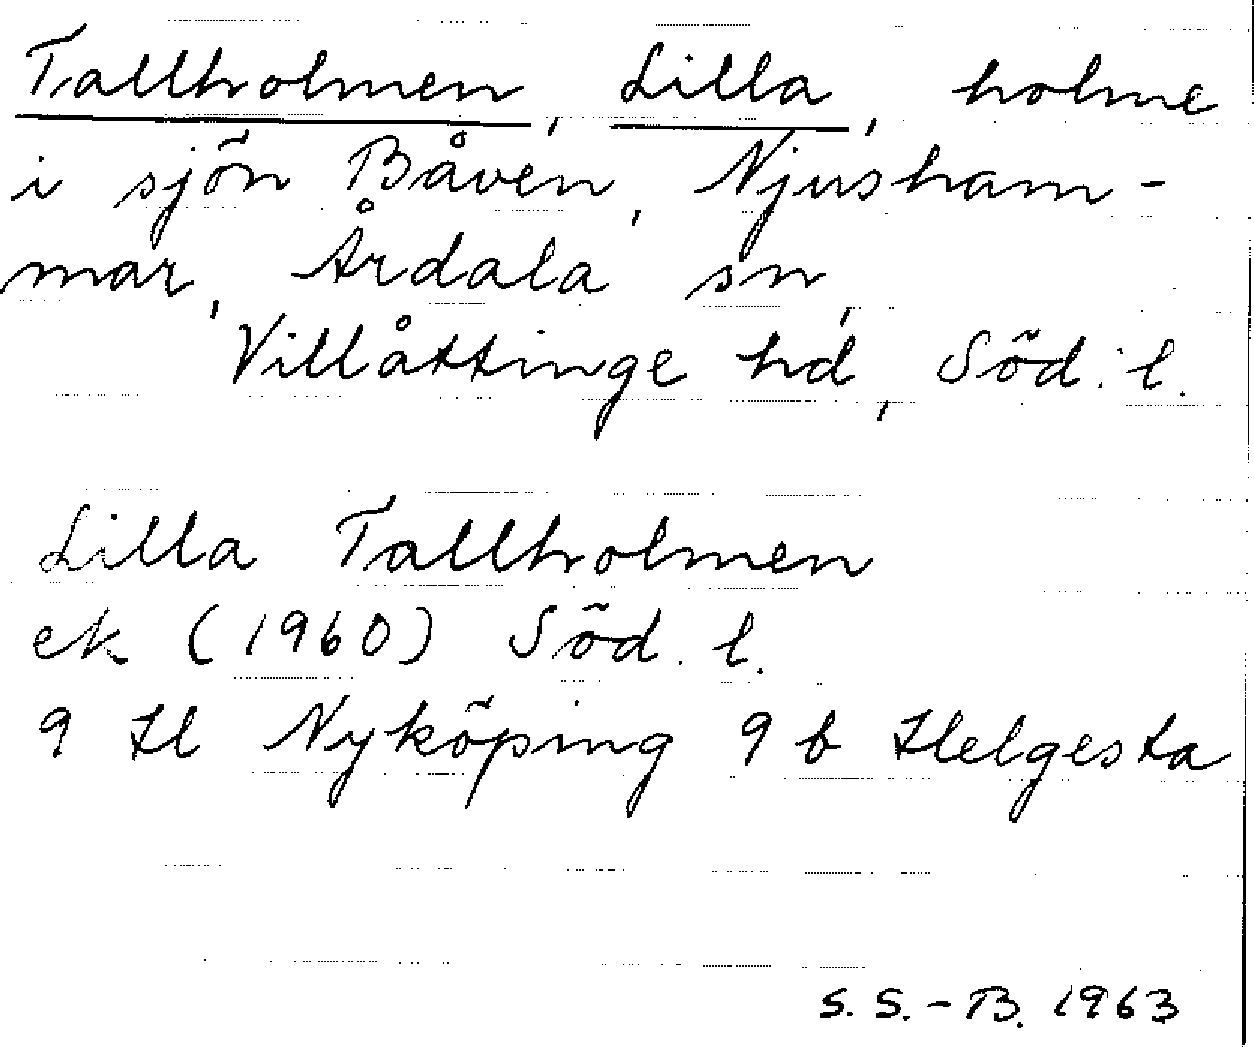 Tallholmen, Lilla, holme
i sjön Båven, Njusham-
mar, Årdala sn,
Villåttinge hd, Söd. l.
Lilla Tallholmen
ek (1960) Söd. l.
9 H Nyköping 9 b Helgesta
S. S.-B. 1963